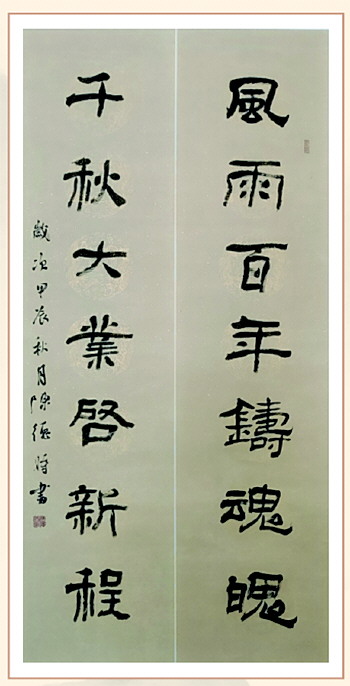 風雨百年鑄魂魄
千秋大業啓新程
歲次甲辰秋月陳德書